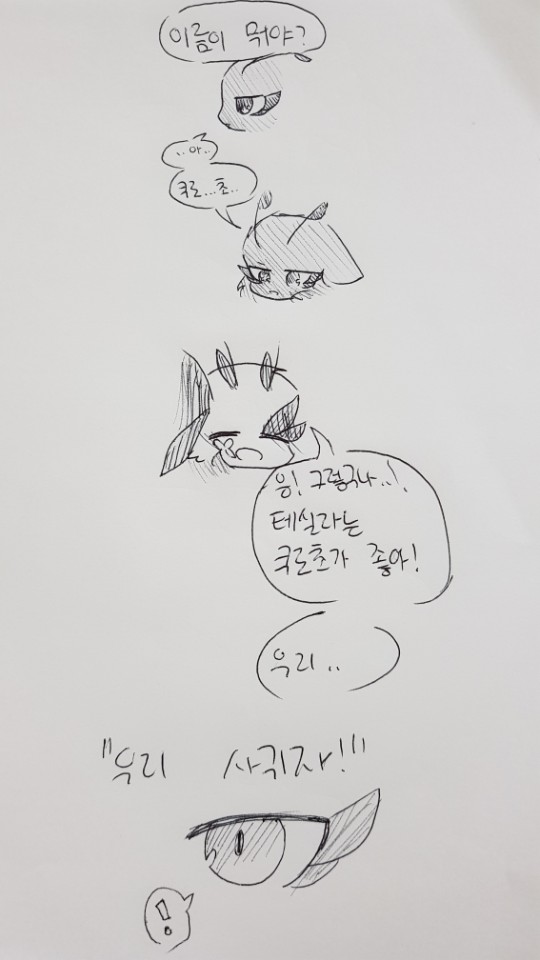 이름이 뭐야?
..아..
쿠로...초..
응! 그렇구나..!
테실라는
쿠로초가 좋아!
우리..
"우리 사귀자!"
!